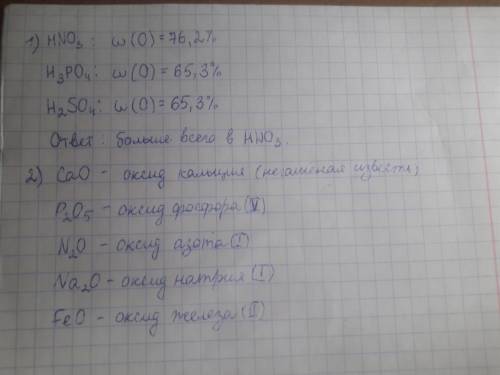 1) HNO₃: ω(O)=76,2%
H₃PO₄: ω(O)=65,3%
H₂SO₄: ω(O)=65,3%
Ответ: больше всего в HNO₃.
2) CaO - оксид кальция (негашеная известь)
P₂O₅ - оксид фосфора (V)
N₂O - оксид азота (I)
Na₂O - оксид натрия (I)
FeO - оксид железа (II)